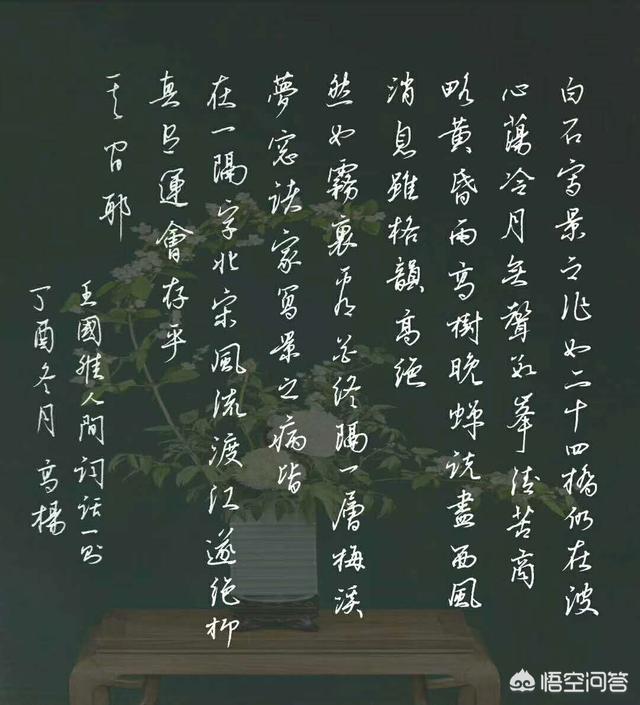 白石寫景之作如二十四橋仍在波
心蕩冷月無聲數峯清苦商
略黃昏雨高樹晚蟬說盡西風
消息雖格韻高絕
然如霧裏看花終隔一層梅溪
夢窓諸家寫景之病皆
在一隔字北宋風流渡江遂絕抑
真有運會存乎
其間耶
王國維人間詞話一則
丁酉冬月 高楊
悟空问答